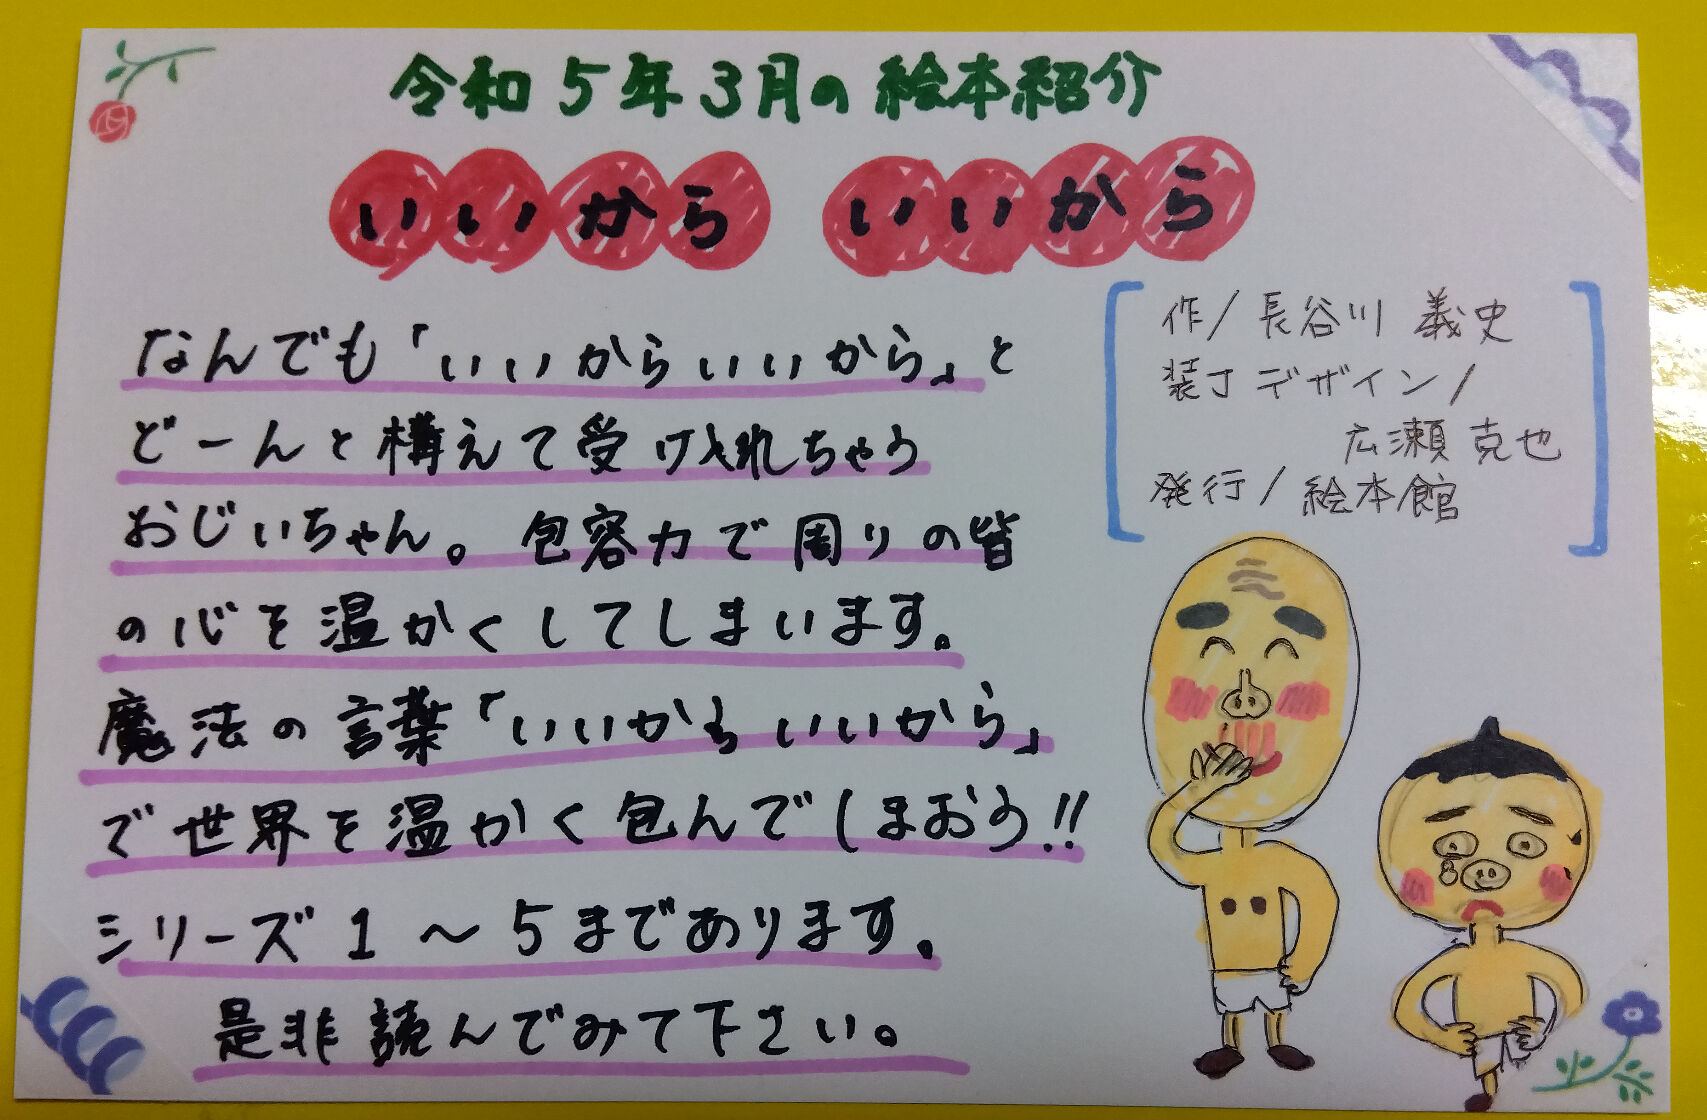 令和5年3月の絵本紹介
いいから いいから
なんでも「いいからいいから」と
どーんと構えて受け入れちゃう
おじいちゃん。包容力で周りの皆
の心を温かくしてしまいます。
魔法の言葉「いいからいいから」
で世界を温かく包んでしまおう!!
シリーズ1〜5まであります。
是非読んでみて下さい。
作/長谷川 義史
装丁デザイン/
広瀬 克也
発行/絵本館